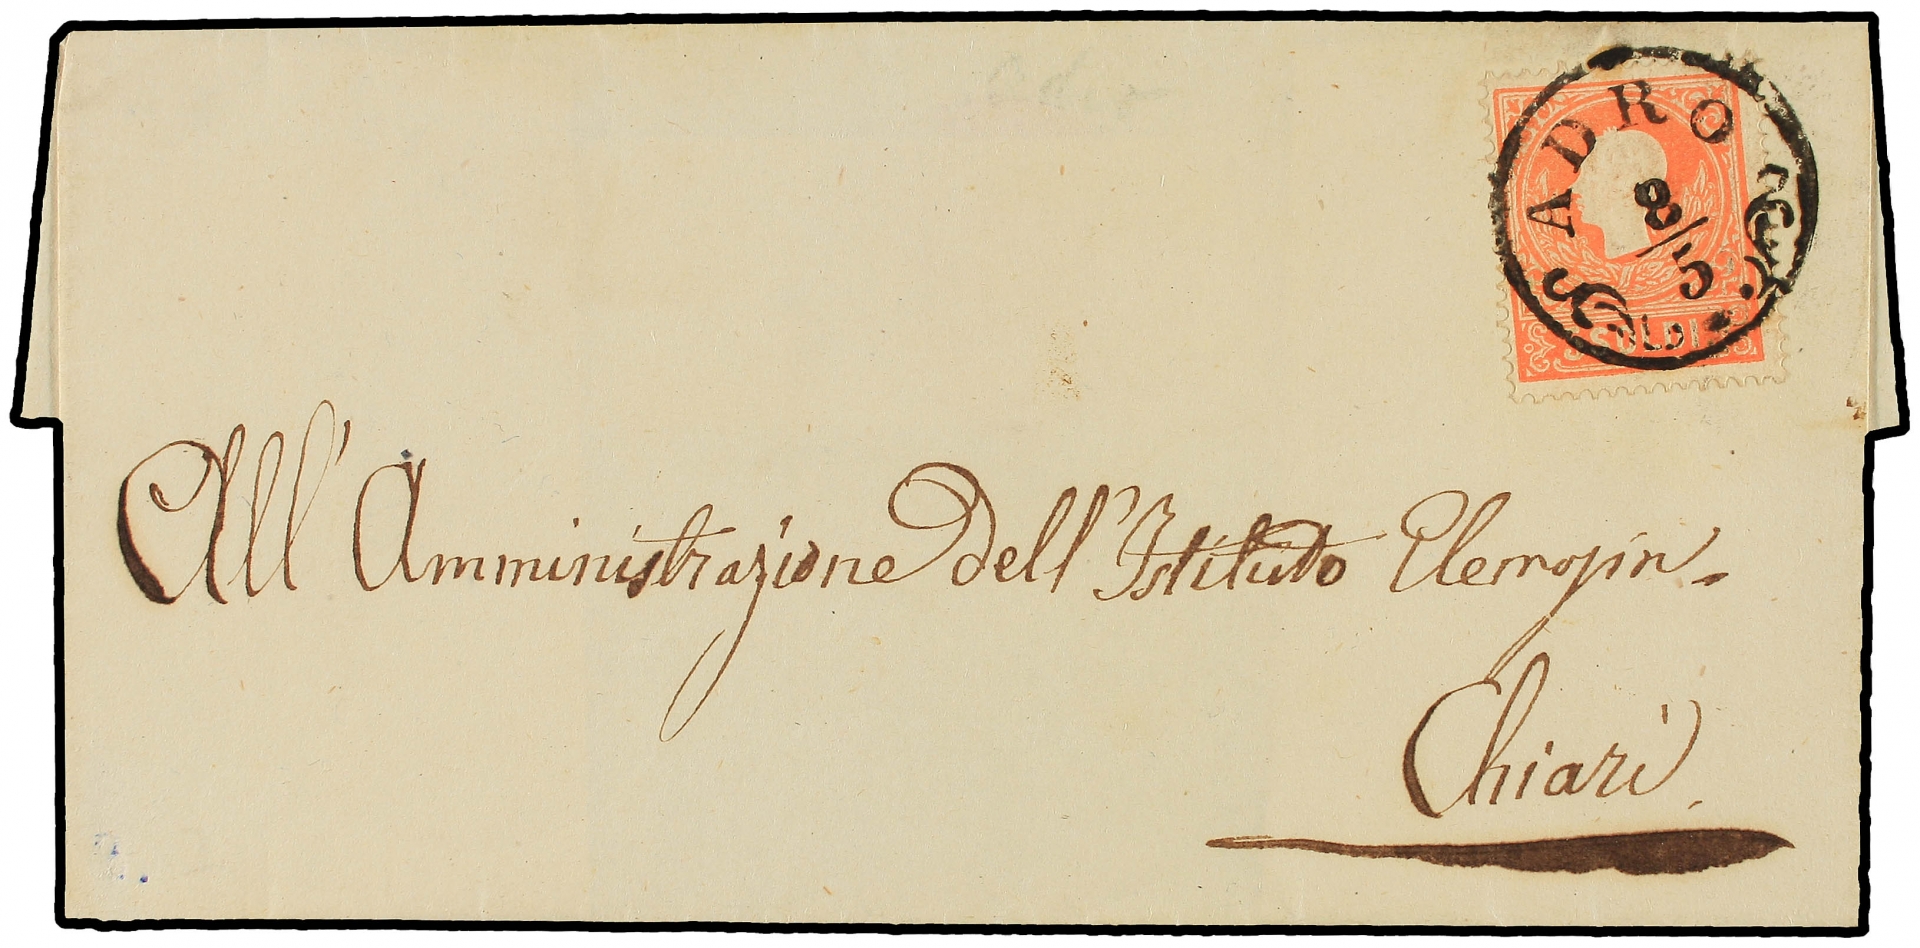 ADRO
8/5
5 SOLDI
All' Amministrazione dell' Istituto Elemosin.
Chiari.